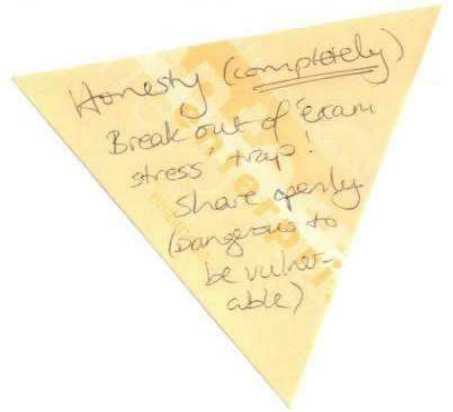 Honesty (completely)
Break out of 'exam
stress' trap!
Share openly
(Dangerous to
be vulner-
able)